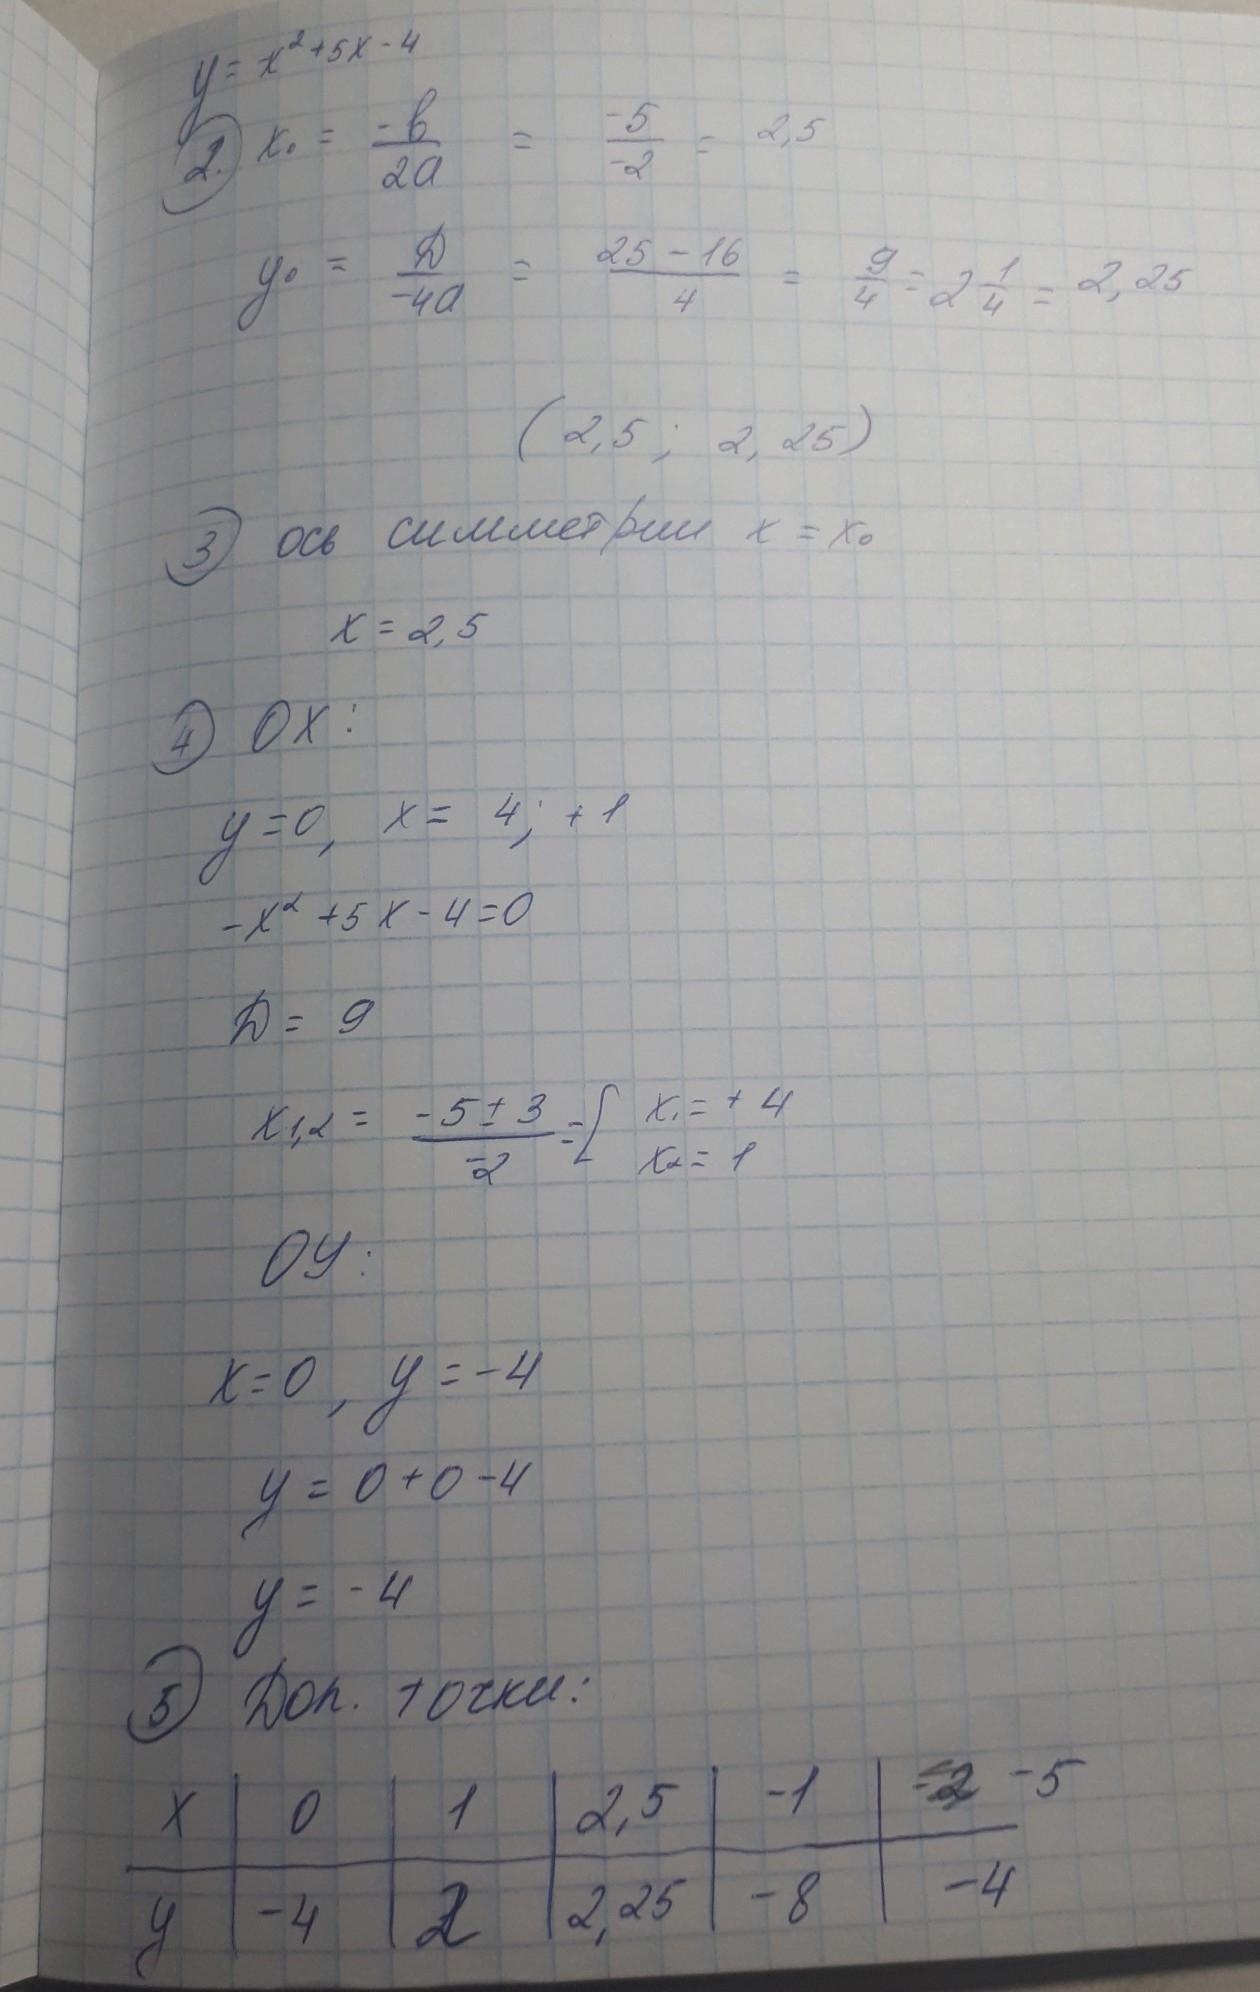 y = x² + 5x - 4
2. x₀ = -b/2a = -5/-2 = 2,5
y₀ = Д/-4a = 25 - 16/4 = 9/4 = 2 1/4 = 2,25
(2,5; 2,25)
3 ось симметрии x = x₀
x = 2,5
4 OX:
y = 0, x = 4; +1
-x² + 5x - 4 = 0
Д = 9
x₁,₂ = -5 ± 3/-2 = [ x₁ = +4
x₂ = 1
OY:
x = 0, y = -4
y = 0 + 0 - 4
y = -4
5 Доп. точки:
x | 0 | 1 | 2,5 | -1 | -5
y | -4 | 2 | 2,25 | -8 | -4